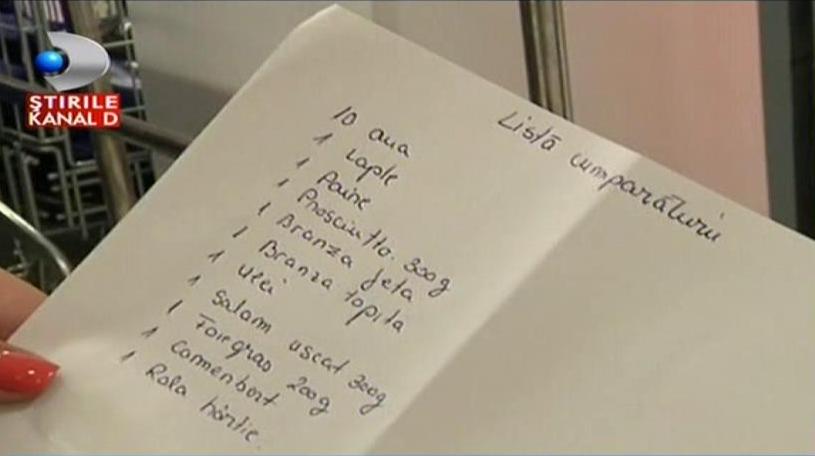 ŞTIRILE
KANAL D
Listă cumparăturii
10 oua
1 Lapte
1 Paine
1 Prosciutto. 300g
1 Branza feta
1 Branza topita
1 Ulei
1 Salam uscat 300g
1 Foiegras 200g
1 Camenbert
1 Rola hârtie.